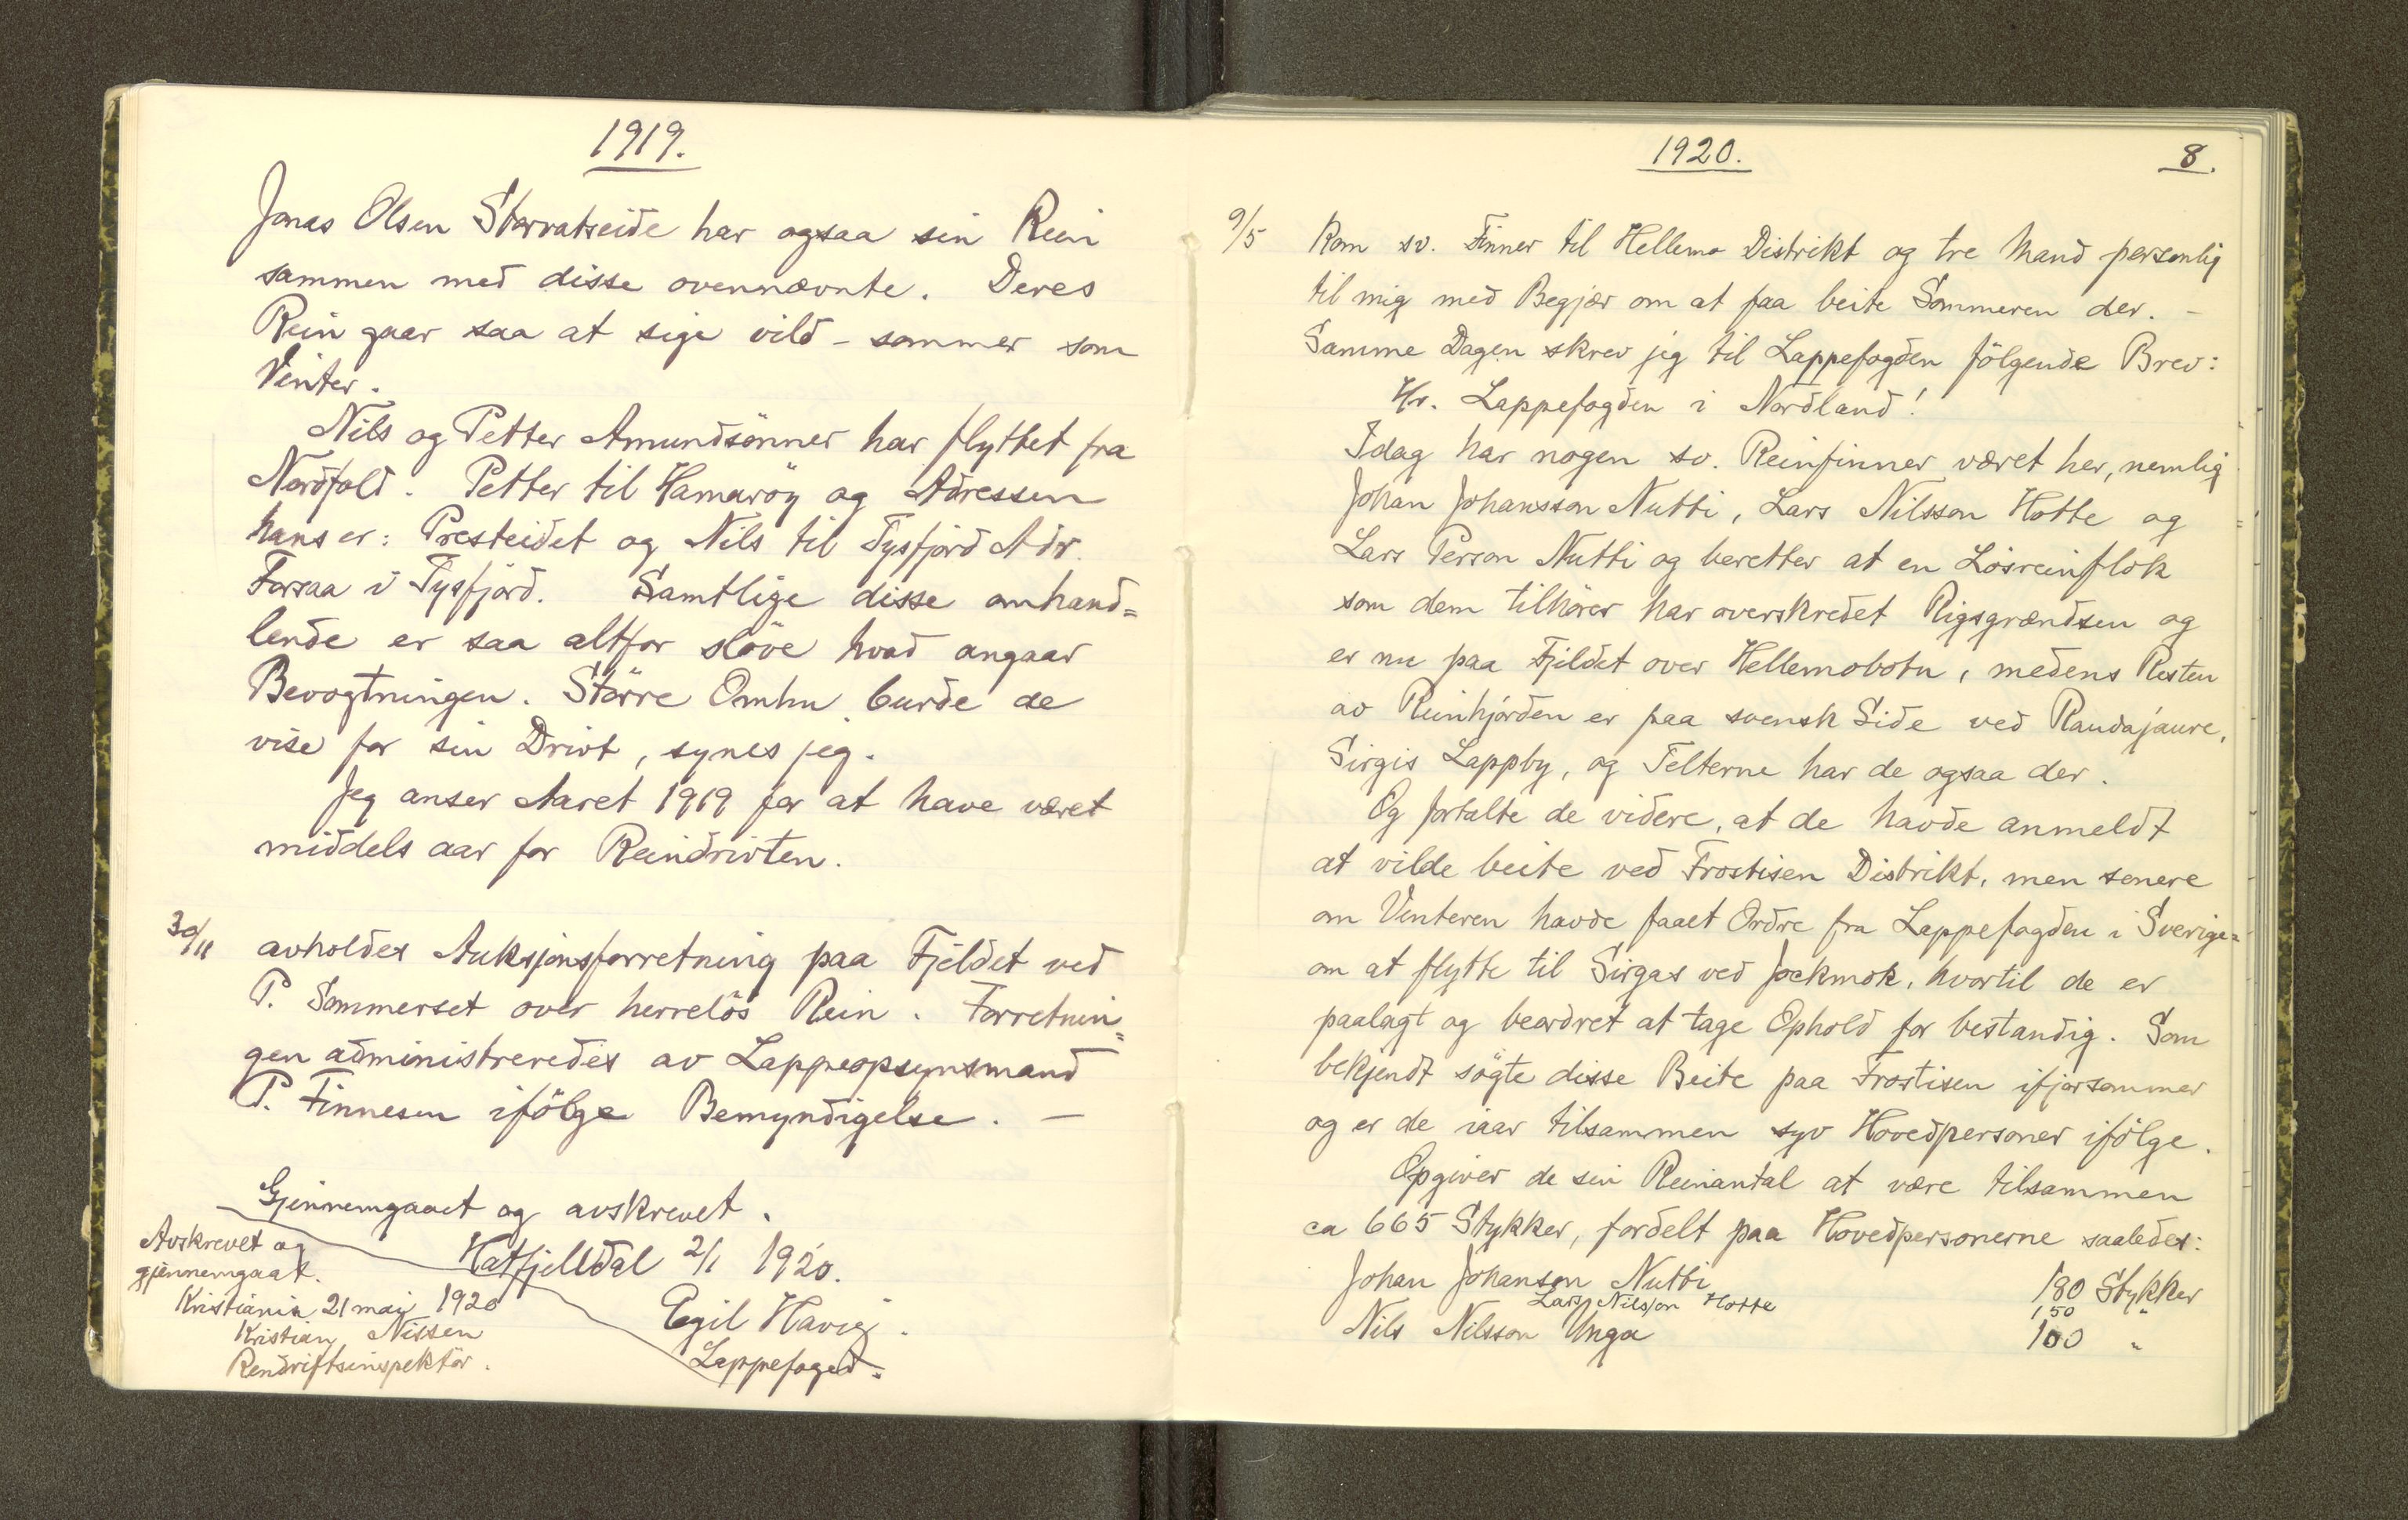 1919.
Jonas Olsen Storvatseide har ogsaa sin Rein
sammen med disse ovennævnte. Deres
Rein gaar saa at sige vild - sommer som
Vinter.
Nils og Petter Amundsönner har flyttet fra
Nordfold. Petter til Hamaröy og Adressen
hans er: Presteidet og Nils til Tysfjord Adr.
Forsaa i Tysfjord. Samtlige disse omhand=
lende er saa altfor slöve hvad angaar
Bevogtningen. Större Omhu burde de
vise for sin Drivt, synes jeg.
Jeg anser Aaret 1919 for at have været
middels aar for Reindrivten.
30/11 avholdes Auksjonsforretning paa Fjeldet ved
P. Sommerset over herrelös Rein. Forretnin=
gen administreredes av Lappeopsynsmand
P. Finnesen ifölge Bemyndigelse. —
Gjennemgaaet og avskrevet.
Hatfjelldal 2/1 1920.
Egil Havig.
Lappefoged.
Avskrevet og
gjennemgaat.
Kristiania 21 mai 1920
Kristian Nissen
Rendriftsinspektör.
1920.
8.
9/5 Kom sv. Finner til Hellemo Distrikt og tre Mand personlig
til mig med Begjær om at faa beite Sommeren der. -
Samme Dagen skrev jeg til Lappefogden fölgende Brev:
Hr. Lappefogden i Nordland!
Idag har nogen sv. Reinfinner været her, nemlig
Johan Johansson Nutti, Lars Nilsson Hotte og
Lars Person Nutti og beretter at en Lösreinflok
som dem tilhörer har overskredet Rigsgrændsen og
er nu paa Fjeldet over Hellemobotn, medens Resten
av Reinhjorden er paa svensk Side ved Raudajaure,
Sirgis Lappby, og Telterne har de ogsaa der.
Og fortalte de videre, at de havde anmeldt
at vilde beite ved Frostisen Distrikt, men senere
om Vinteren havde faaet Ordre fra Lappefogden i Sverige
om at flytte til Sirgas ved Jockmok, hvortil de er
paalagt og beordret at tage Ophold for bestandig. Som
bekjendt sögte disse Beite paa Frostisen ifjorsommer
og er de iaar tilsammen syv Hovedpersoner ifölge.
Opgiver de sin Reinantal at være tilsammen
ca 665 Stykker, fordelt paa Hovedpersonerne saaledes:
Johan Johanson Nutti 180 Stykker
Lars Nilsson Hotte 150 "
Nils Nilsson Unga 100 "